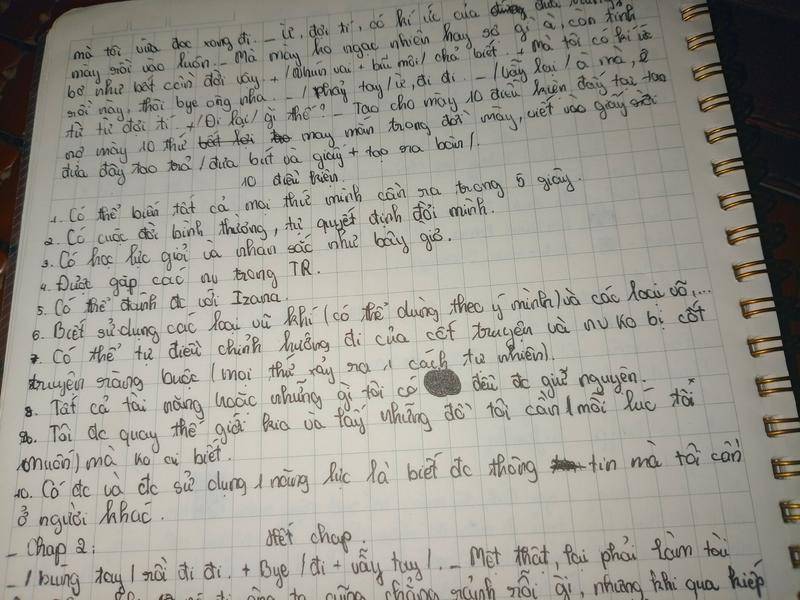 mà tôi vừa đọc xong đi. - Ừ, đợi tí, có kí ức của
mày rồi vào luôn. - Mà mày ko ngạc nhiên hay sợ gì à, còn tỉnh
bơ như bết còn đòi vậy. + /Nhún vai + bĩu môi/ chả biết. + Mà tôi có kí ức
rồi này, thôi bye ông nha. - /phẩy tay/ ừ, đi đi. - /vẫy lại/ à mà, ê
từ từ đợi tí. + /Đi lại/ gì thế? - Tao cho mày 10 điều kiện, đấy tại tao
nợ mày 10 thứ may mắn trong đời mày, viết vào giấy rồi
đưa đây tao trả /đưa bút và giấy + tạo ra bàn/.
10 điều kiện.
1. Có thể biến tất cả mọi thứ mình cần ra trong 5 giây.
2. Có cuộc đời bình thường, tự quyết định đời mình.
3. Có học lực giỏi và nhan sắc như bây giờ.
4. Được gặp các nv trong TR.
5. Có thể đánh đc với Izana.
6. Biết sử dụng các loại vũ khí (có thể dùng theo ý mình) và các loại võ,...
7. Có thể tự điều chỉnh hướng đi của cốt truyện và nv ko bị cốt
truyện ràng buộc (mọi thứ xảy ra 1 cách tự nhiên).
8. Tất cả tài năng hoặc những gì tôi có đều đc giữ nguyên.
9. Tôi đc quay thế giới kia và lấy những đồ tôi cần (mỗi lúc tôi
muốn) mà ko ai biết.
10. Có đc và đc sử dụng 1 năng lực là biết đc thông tin mà tôi cần
ở người khác.
Hết chap.
- Chap 2:
- /búng tay/ rồi đi đi. + Bye /đi + vẫy tay/. - Mệt thật, lại phải làm tài
ông ta cũng chẳng rảnh rỗi gì, nhưng khi qua kiếp